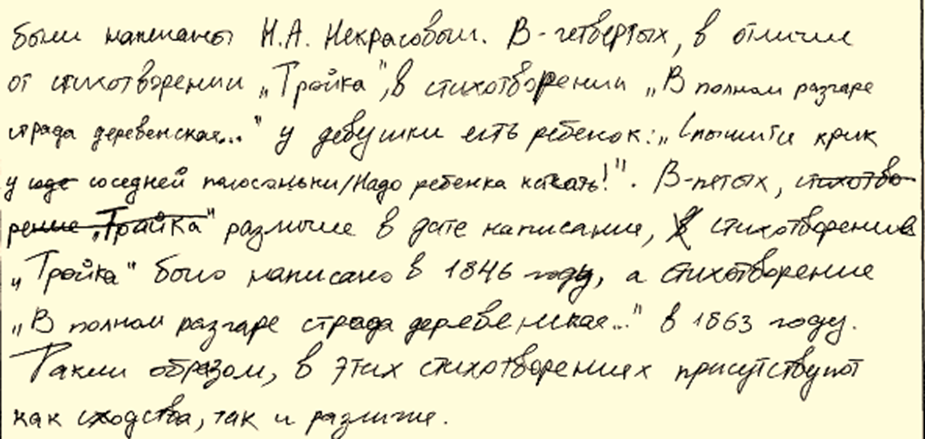 были написаны Н.А. Некрасовым. В-четвертых, в отличии
от стихотворении „Тройка", в стихотворении „В полном разгаре
страда деревенская..." у девушки есть ребенок: „Слышится крик
у соседней полосаньки/Надо ребенка качать!". В-пятых, стихотво-
рение „Тройка" различие в дате написание, стихотворение
„Тройка" было написано в 1846 году, а стихотворение
„В полном разгаре страда деревенская..." в 1863 году.
Таким образом, в этих стихотворениях присутствуют
как сходства, так и различие.